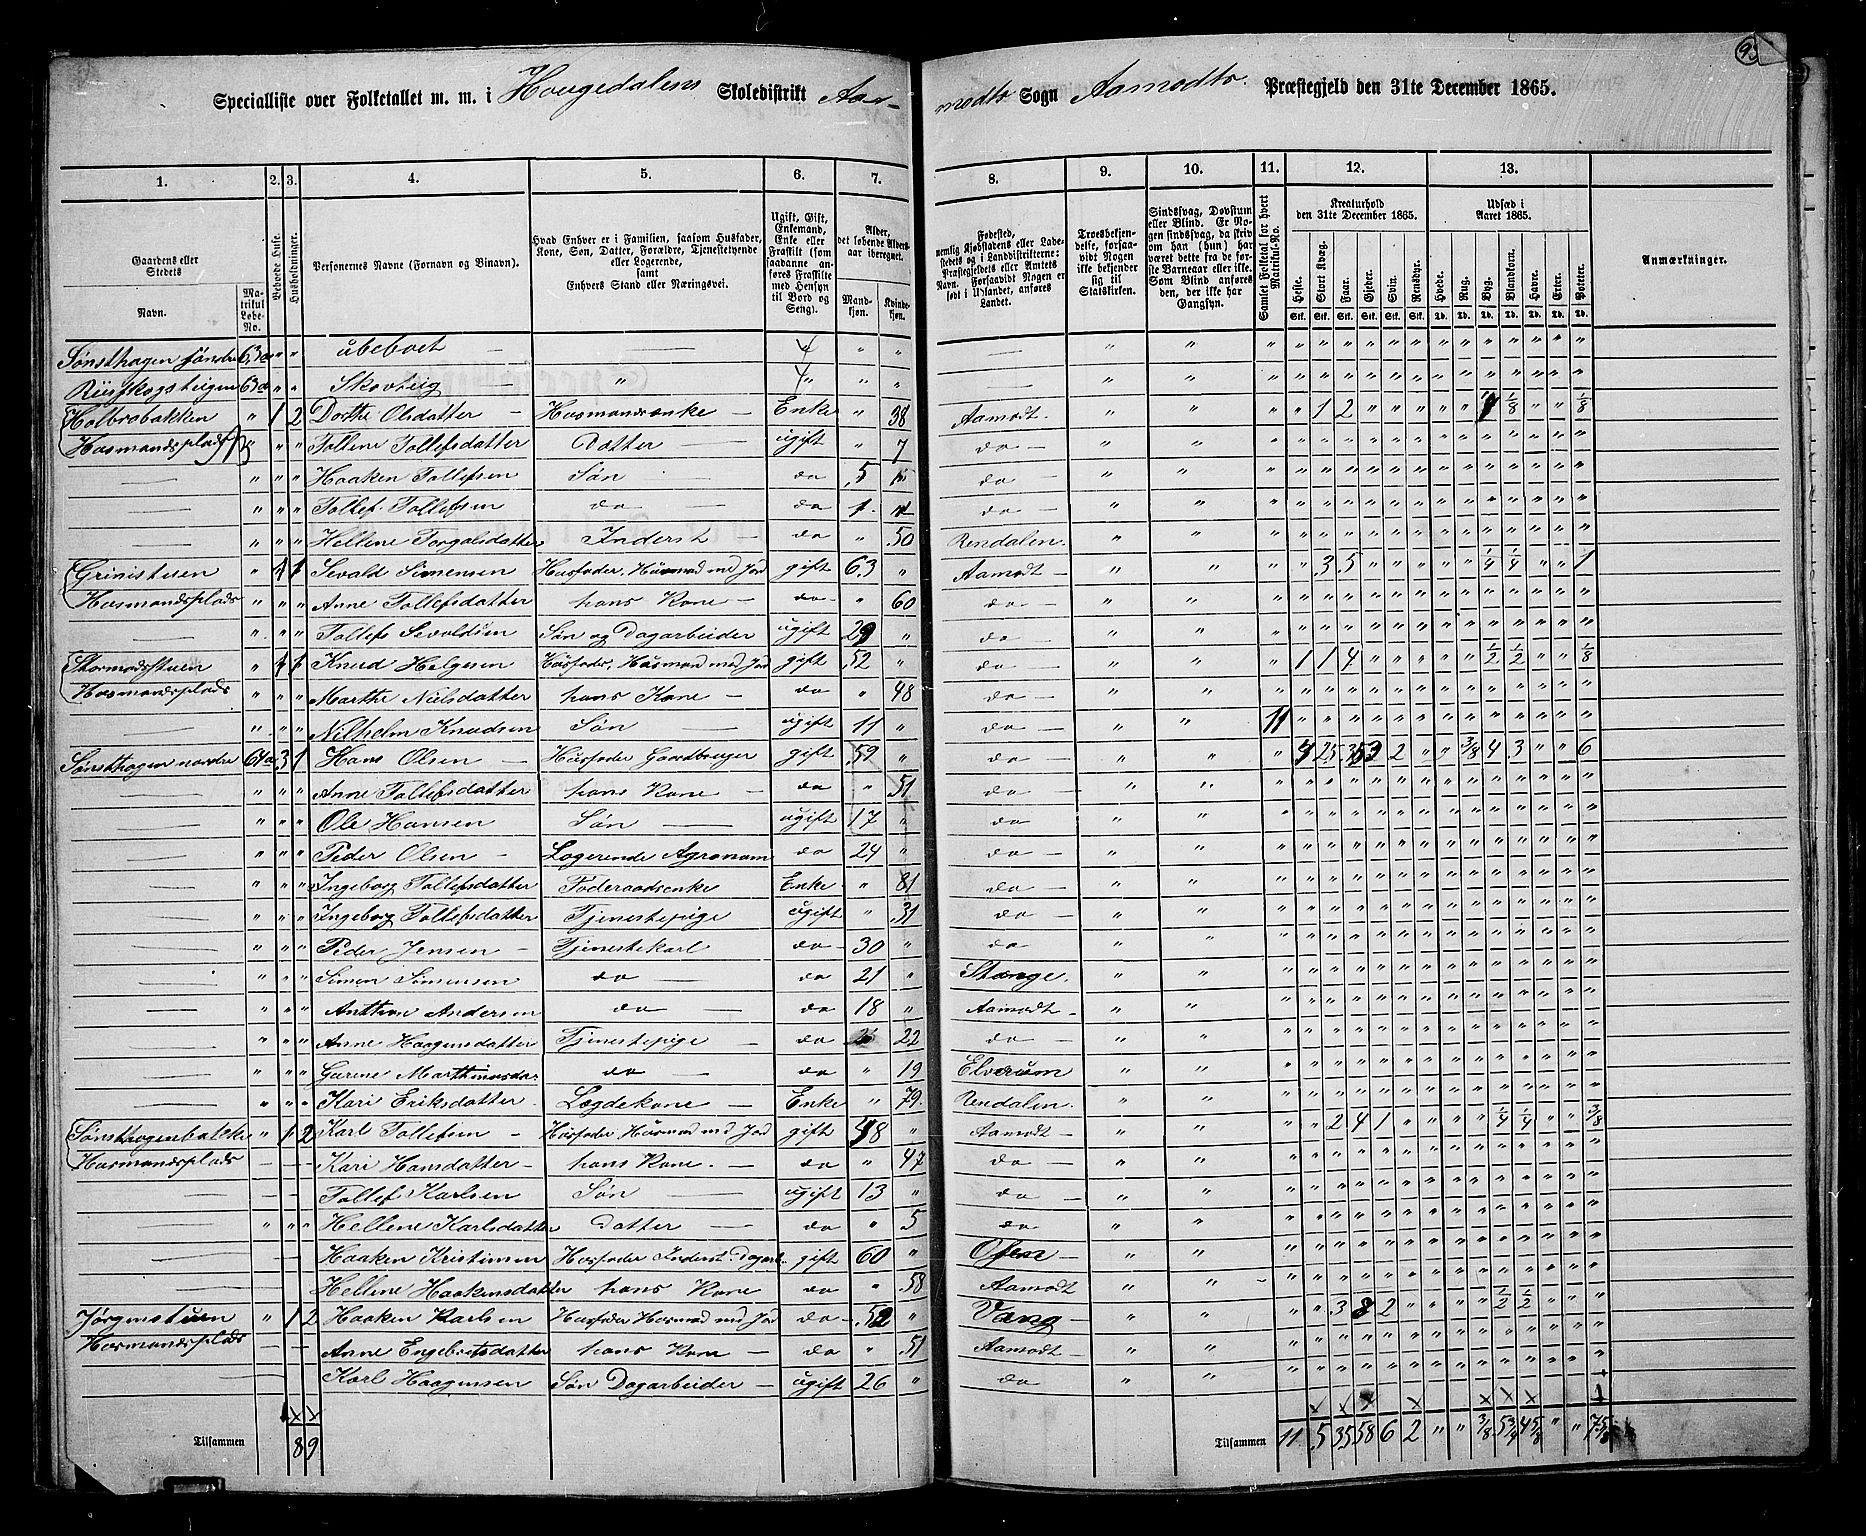 93
Specialliste over Folketallet m. m. i Hougedalens Skoledistrikt Aa-
modts Sogn Aamodts Præstegjeld den 31te December 1865.
1. 2. 3. 4. 5. 6. 7. 8. 9. 10. 11. 12. 13.
Gaardens eller Stedets
Navn.
Matrikul Løbe-No.
Beboede Huse.
Husholdninger.
Personernes Navne (Fornavn og Binavn).
Hvad Enhver er i Familien, saasom Husfader, Kone, Søn, Datter, Forældre, Tjenestetyende eller Logerende, samt Enhvers Stand eller Næringsvei.
Ugift, Gift, Enkemand, Enke eller Fraskilt (som saadanne anføres Fraskilte med Hensyn til Bord og Seng).
Alder, det løbende Alders-aar iberegnet.
Mandkjøn.
Kvindekjøn.
Fødested, nemlig Kjøbstadens eller Ladestedets og i Landdistrikterne: Præstegjeldets eller Amtets Navn. Forsaavidt Nogen er født i Udlandet, anføres Landet.
Troesbekjendelse, forsaavidt Nogen ikke bekjender sig til Statskirken.
Sindssvag, Døvstum eller Blind. Er Nogen sindssvag, da skriv om han (hun) har været dette fra de første Barneaar eller ikke. Som Blind anføres den, der ikke har Gangsyn.
Samlet Folketal for hvert Matrikul-No.
Kreaturhold den 31te December 1865.
Heste. Stort Kvæg. Faar. Gjeder. Svin. Rensdyr.
Udsæd i Aaret 1865.
Hvede. Rug. Byg. Blandkorn. Havre. Erter. Poteter.
Anmærkninger.
Sønsthagen søndre 63a " " ubeboet — " "
Riisskogsteigen 63d " " Skovteig " " "
Holbrobakken " 1 2 Dorthe Olsdatter Husmandsenke Enke " 38 Aamodt " " " " 1 2 " " " 1/8 " " 1/8
Husmandsplads " " Tollene Tollefsdatter Datter ugift " 7 do
" " " Haaken Tollefsen Søn do 5 do
" " " Tollef Tollefsen do do 1 do
" " " Hellene Torgalsdatter Inderst do " 50 Rendalen
Grinistuen " 1 1 Sevald Simensen Husfader, Husmand med Jord gift 63 " Aamodt " 3 5 " " " 1/4 1/4 " " 1
Husmandsplads " " " Anne Tollefsdatter hans Kone do " 60 do
" " " Tollefs Sevaldsen Søn og Dagarbeider ugift 29 " do
Stormodstuen " 1 1 Knud Helgesen Husfader, Husmand med Jord gift 52 " do 1 1 4 " " " 1/2 1/2 " " 1/8
Husmandsplads " " " Marthe Nielsdatter hans Kone do " 48 do
" " " Nilhelm Knudsen Søn ugift 11 " do 11
Sønsthagen nordre 64a 3 1 Hans Olsen Husfader Gaardbruger gift 59 " do 4 25 35 3 2 " " 3/8 4 3 " " 6
" " " Anne Tollefsdatter hans Kone do " 51 do
" " " Ole Hansen Søn ugift 17 " do
" " " Peder Olsen Logerende Agronom do 24 " do
" " " Ingeborg Tollefsdatter Føderaadsenke Enke " 81 do
" " " Ingeborg Tollefsdatter Tjenestepige ugift " 31 do
" " " Peder Jensen Tjenestekarl do 30 " do
" " " Simen Simensen do do 21 " Stange
" " " Anthon Andersen do do 18 " Aamodt
" " " Anne Haagensdatter Tjenestepige do 22 do
" " " Gurine Marthinusdar. do do " 19 Elverum
" " " Kari Eriksdatter Lægdekone Enke " 79 Rendalen
Sønsthagenbakke " 1 2 Karl Tollefsen Husfader Husmand med Jord gift 48 " Aamodt " 2 4 1 " " 1/4 1/4 " " 3/8
Husmandsplads Kari Hansdatter hans Kone do " 47 do
Tollef Karlsen Søn ugift 13 " do
" " " Hellene Karlsdatter Datter do " 5 do
Haaken Kristiansen Husfader Inderst Dagarb. gift 60 " Osen
Hellene Haakensdatter hans Kone do " 58 Aamodt
Jørgenstuen " 1 2 Haaken Karlsen Husfader Husmand med Jord do 52 " Vang " 3 8 2 " " 1/2 1/2 " "
Husmandsplads Anne Engebretsdatter hans Kone do " 51 Aamodt
Karl Haagensen Søn Dagarbeider ugift 26 " do
Tilsammen 8 9
Tilsammen 11 5 35 58 6 2 " " 3/8 5 3/4 4 5/8 " " 7 5/8